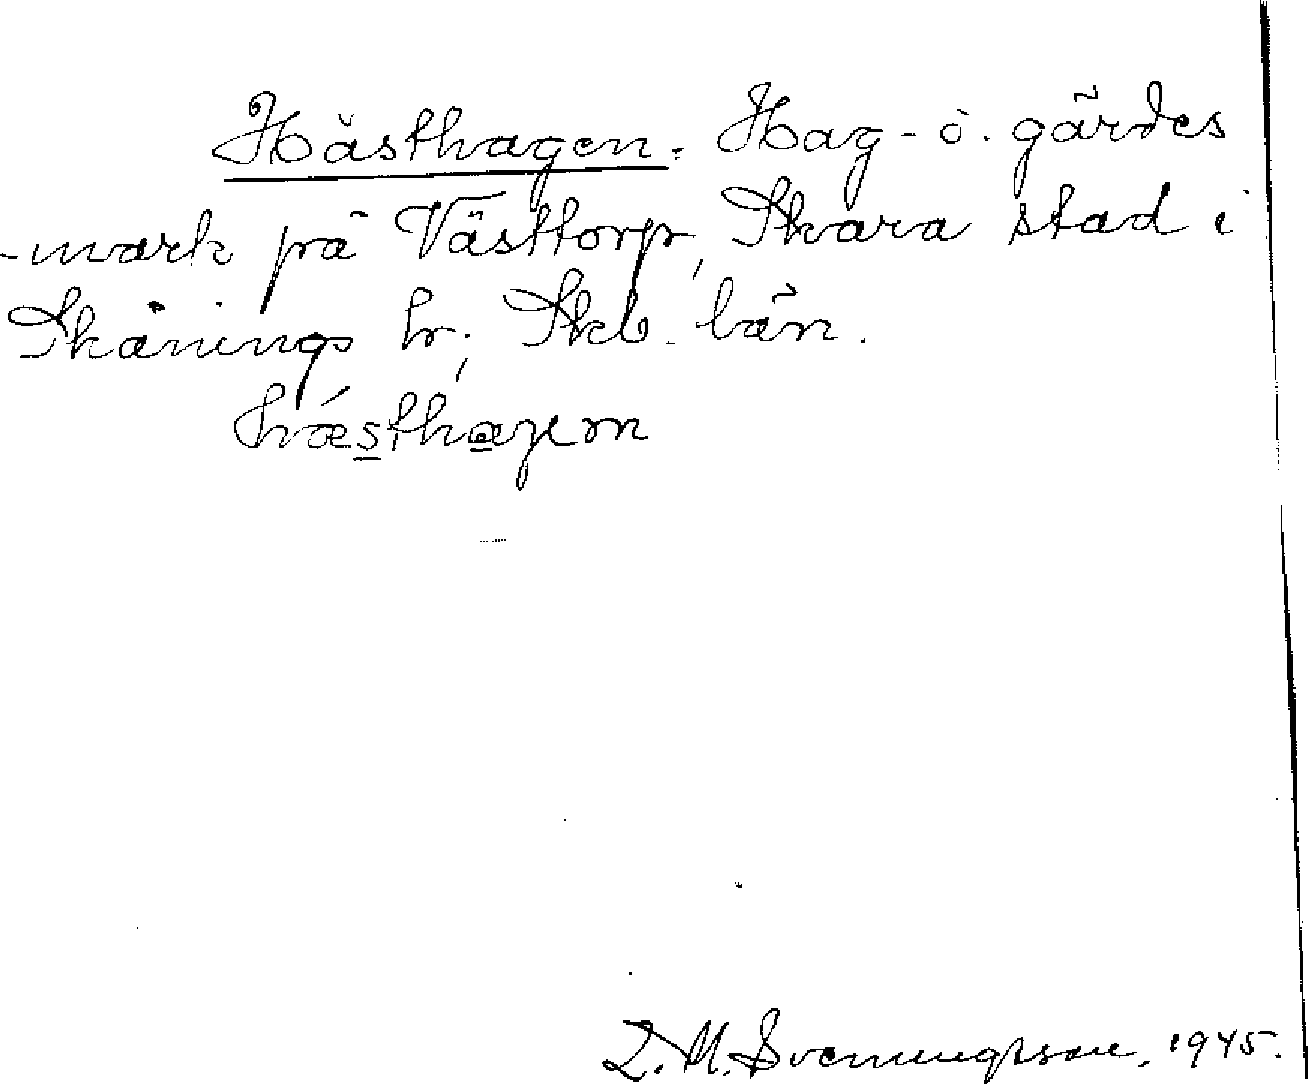 Hästhagen. Hag- o. gärdes
-mark på Västtorp, Skara stad i
Skånings hr, Skb. län.
hǽsthagen
L. M. Svenungsson. 1945.